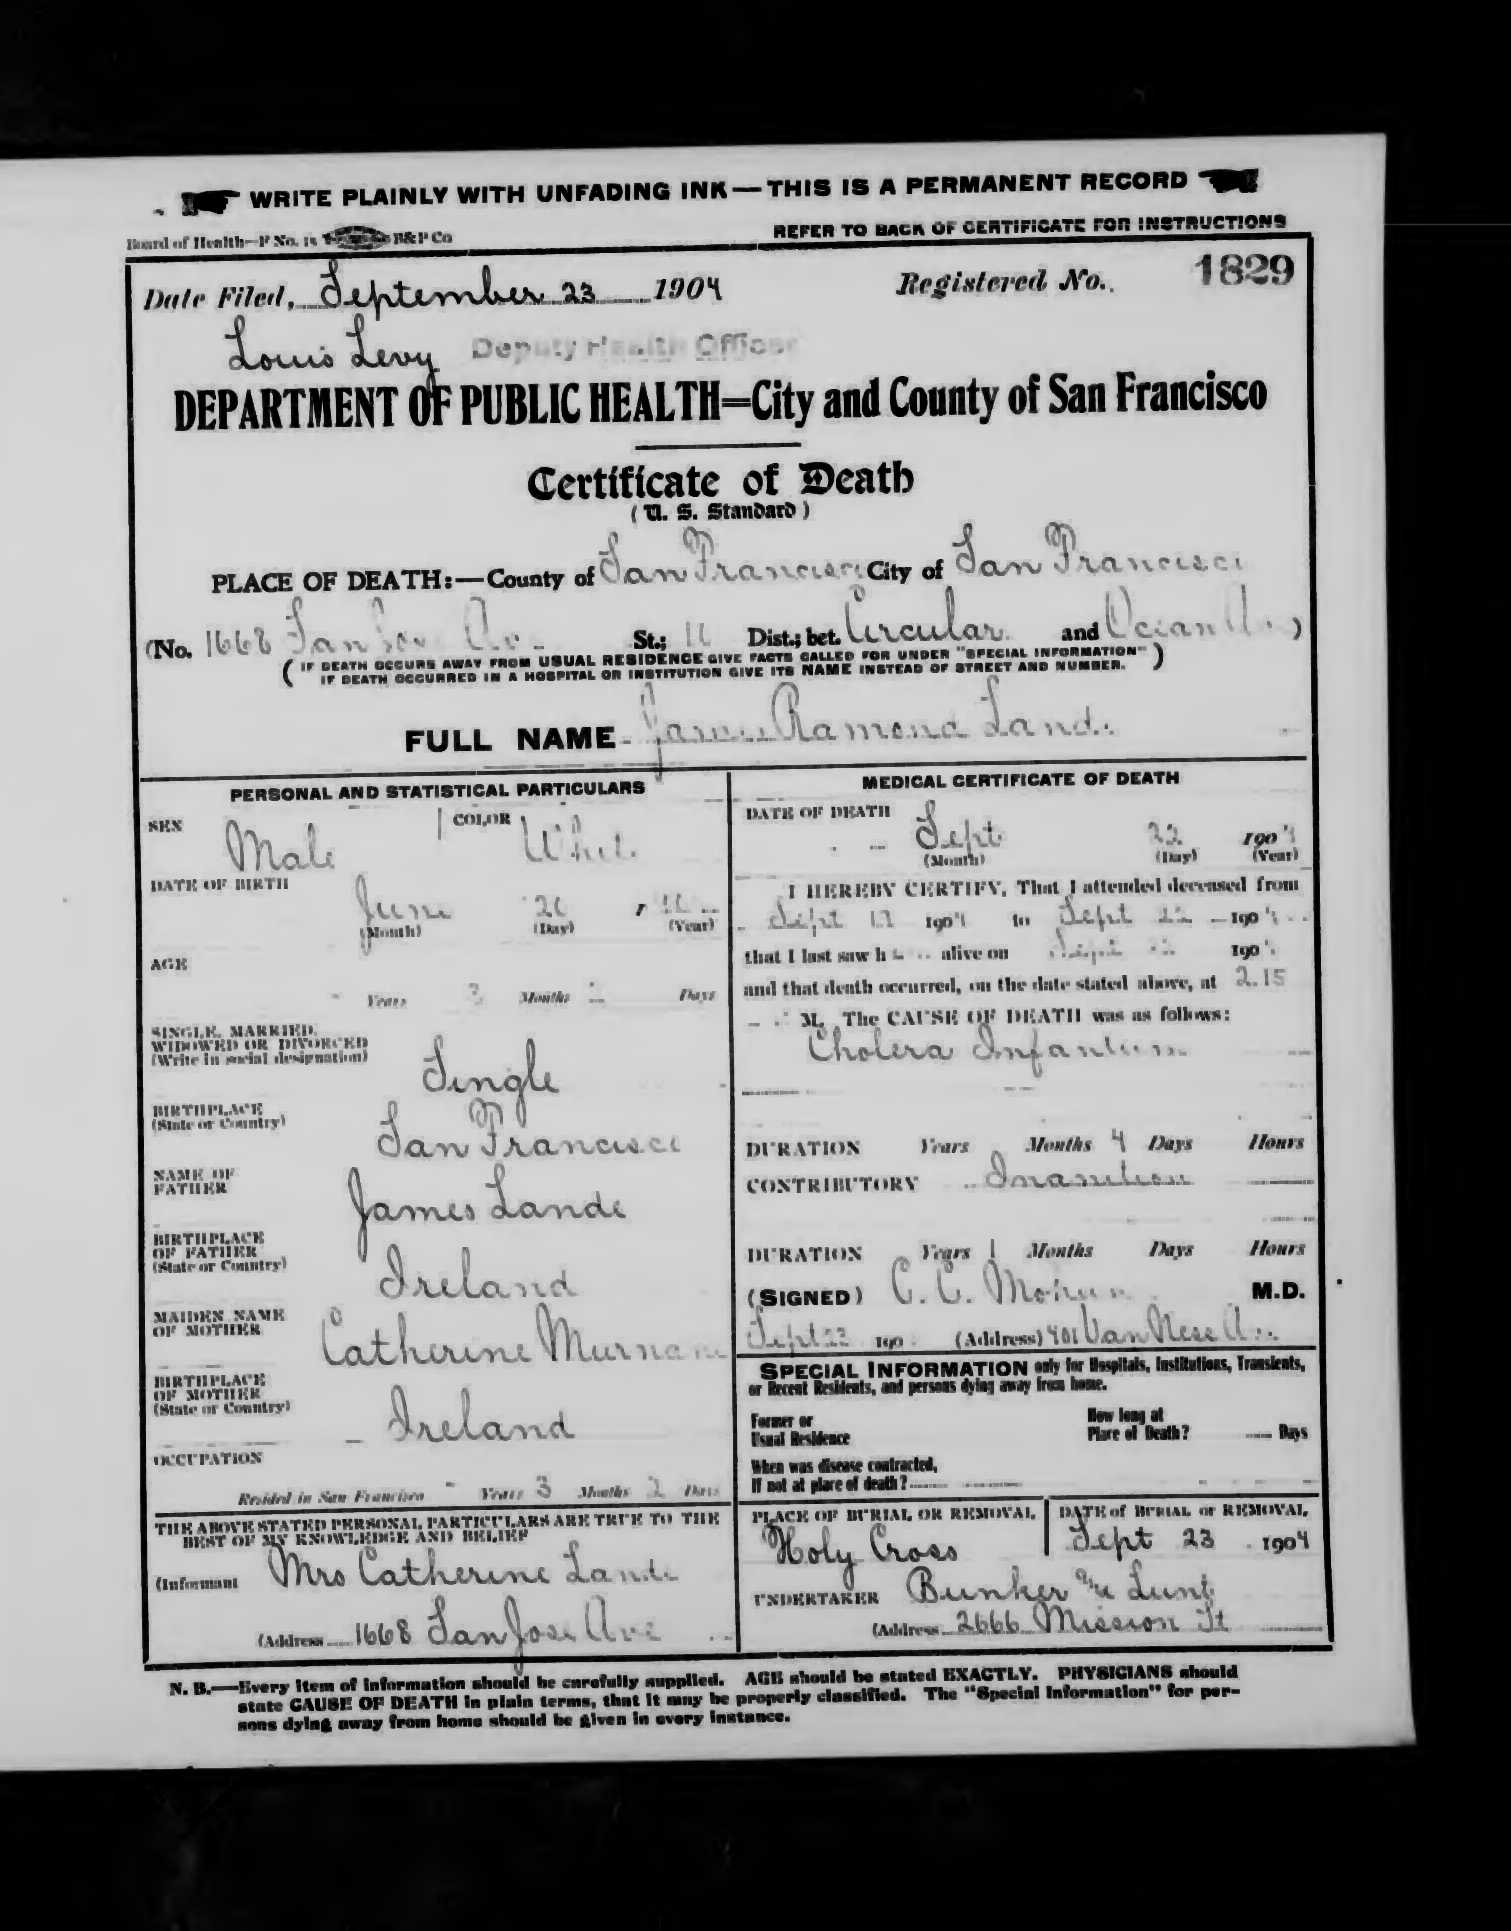 WRITE PLAINLY WITH UNFADING INK — THIS IS A PERMANENT RECORD
Board of Health—F No. 15 B&P Co
REFER TO BACK OF CERTIFICATE FOR INSTRUCTIONS
Date Filed, September 23 1904 Registered No. 1829
Louis Levy Deputy Health Officer
DEPARTMENT OF PUBLIC HEALTH=City and County of San Francisco
Certificate of Death
( U. S. Standard )
PLACE OF DEATH:—County of San Francisco City of San Francisco
(No. 1668 San Jose Ave St.; 11 Dist.; bet. Circular and Ocean Ave )
( IF DEATH OCCURS AWAY FROM USUAL RESIDENCE GIVE FACTS CALLED FOR UNDER "SPECIAL INFORMATION" )
IF DEATH OCCURRED IN A HOSPITAL OR INSTITUTION GIVE ITS NAME INSTEAD OF STREET AND NUMBER.
FULL NAME James Ramond Lande
PERSONAL AND STATISTICAL PARTICULARS
SEX Male COLOR White
DATE OF BIRTH
June 20 1
(Month) (Day) (Year)
AGE
Years 3 Months 2 Days
SINGLE, MARRIED,
WIDOWED OR DIVORCED
(Write in social designation)
Single
BIRTHPLACE
(State or Country)
San Francisco
NAME OF
FATHER
James Lande
BIRTHPLACE
OF FATHER
(State or Country)
Ireland
MAIDEN NAME
OF MOTHER
Catherine Murnane
BIRTHPLACE
OF MOTHER
(State or Country)
Ireland
OCCUPATION
Resided in San Francisco - Years 3 Months 2 Days
THE ABOVE STATED PERSONAL PARTICULARS ARE TRUE TO THE
BEST OF MY KNOWLEDGE AND BELIEF
(Informant Mrs Catherine Lande
(Address 1668 San Jose Ave
MEDICAL CERTIFICATE OF DEATH
DATE OF DEATH
Sept 22 1904
(Month) (Day) (Year)
I HEREBY CERTIFY, That I attended deceased from
Sept 1904 to Sept 22 1904
that I last saw h alive on Sept 22 1904
and that death occurred, on the date stated above, at 2.15
M. The CAUSE OF DEATH was as follows:
Cholera Infantum
DURATION Years Months 4 Days Hours
CONTRIBUTORY Inanition
DURATION Years 1 Months Days Hours
(SIGNED) C. C. Mohun M.D.
Sept 22 190 (Address) 401 Van Ness Ave
SPECIAL INFORMATION only for Hospitals, Institutions, Transients,
or Recent Residents, and persons dying away from home.
Former or
Usual Residence
How long at
Place of Death? Days
When was disease contracted,
If not at place of death?
PLACE OF BURIAL OR REMOVAL
Holy Cross
DATE of BURIAL or REMOVAL
Sept 23 1904
UNDERTAKER Bunker and Lunt
(Address 2666 Mission St
N. B.—Every item of information should be carefully supplied. AGE should be stated EXACTLY. PHYSICIANS should
state CAUSE OF DEATH in plain terms, that it may be properly classified. The "Special Information" for per-
sons dying away from home should be given in every instance.